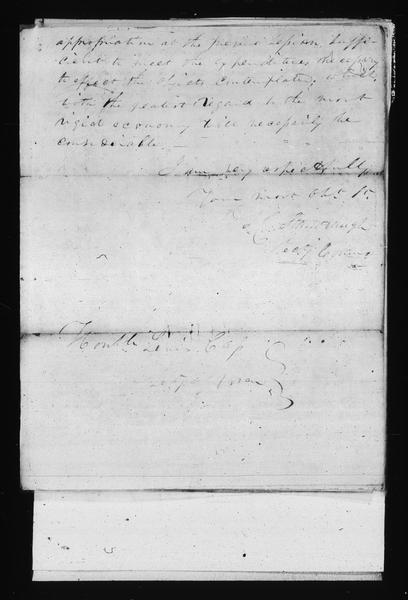 appropriation at the present session, suffi
cient to meet the expenditures necessary
to effect the objects contemplated; which
with the greatest regard to the most
rigid economy will necessarily be
considerable.
I am very respectfully
Your most Obt. St.
Honble Lewis Cass
Secy of War